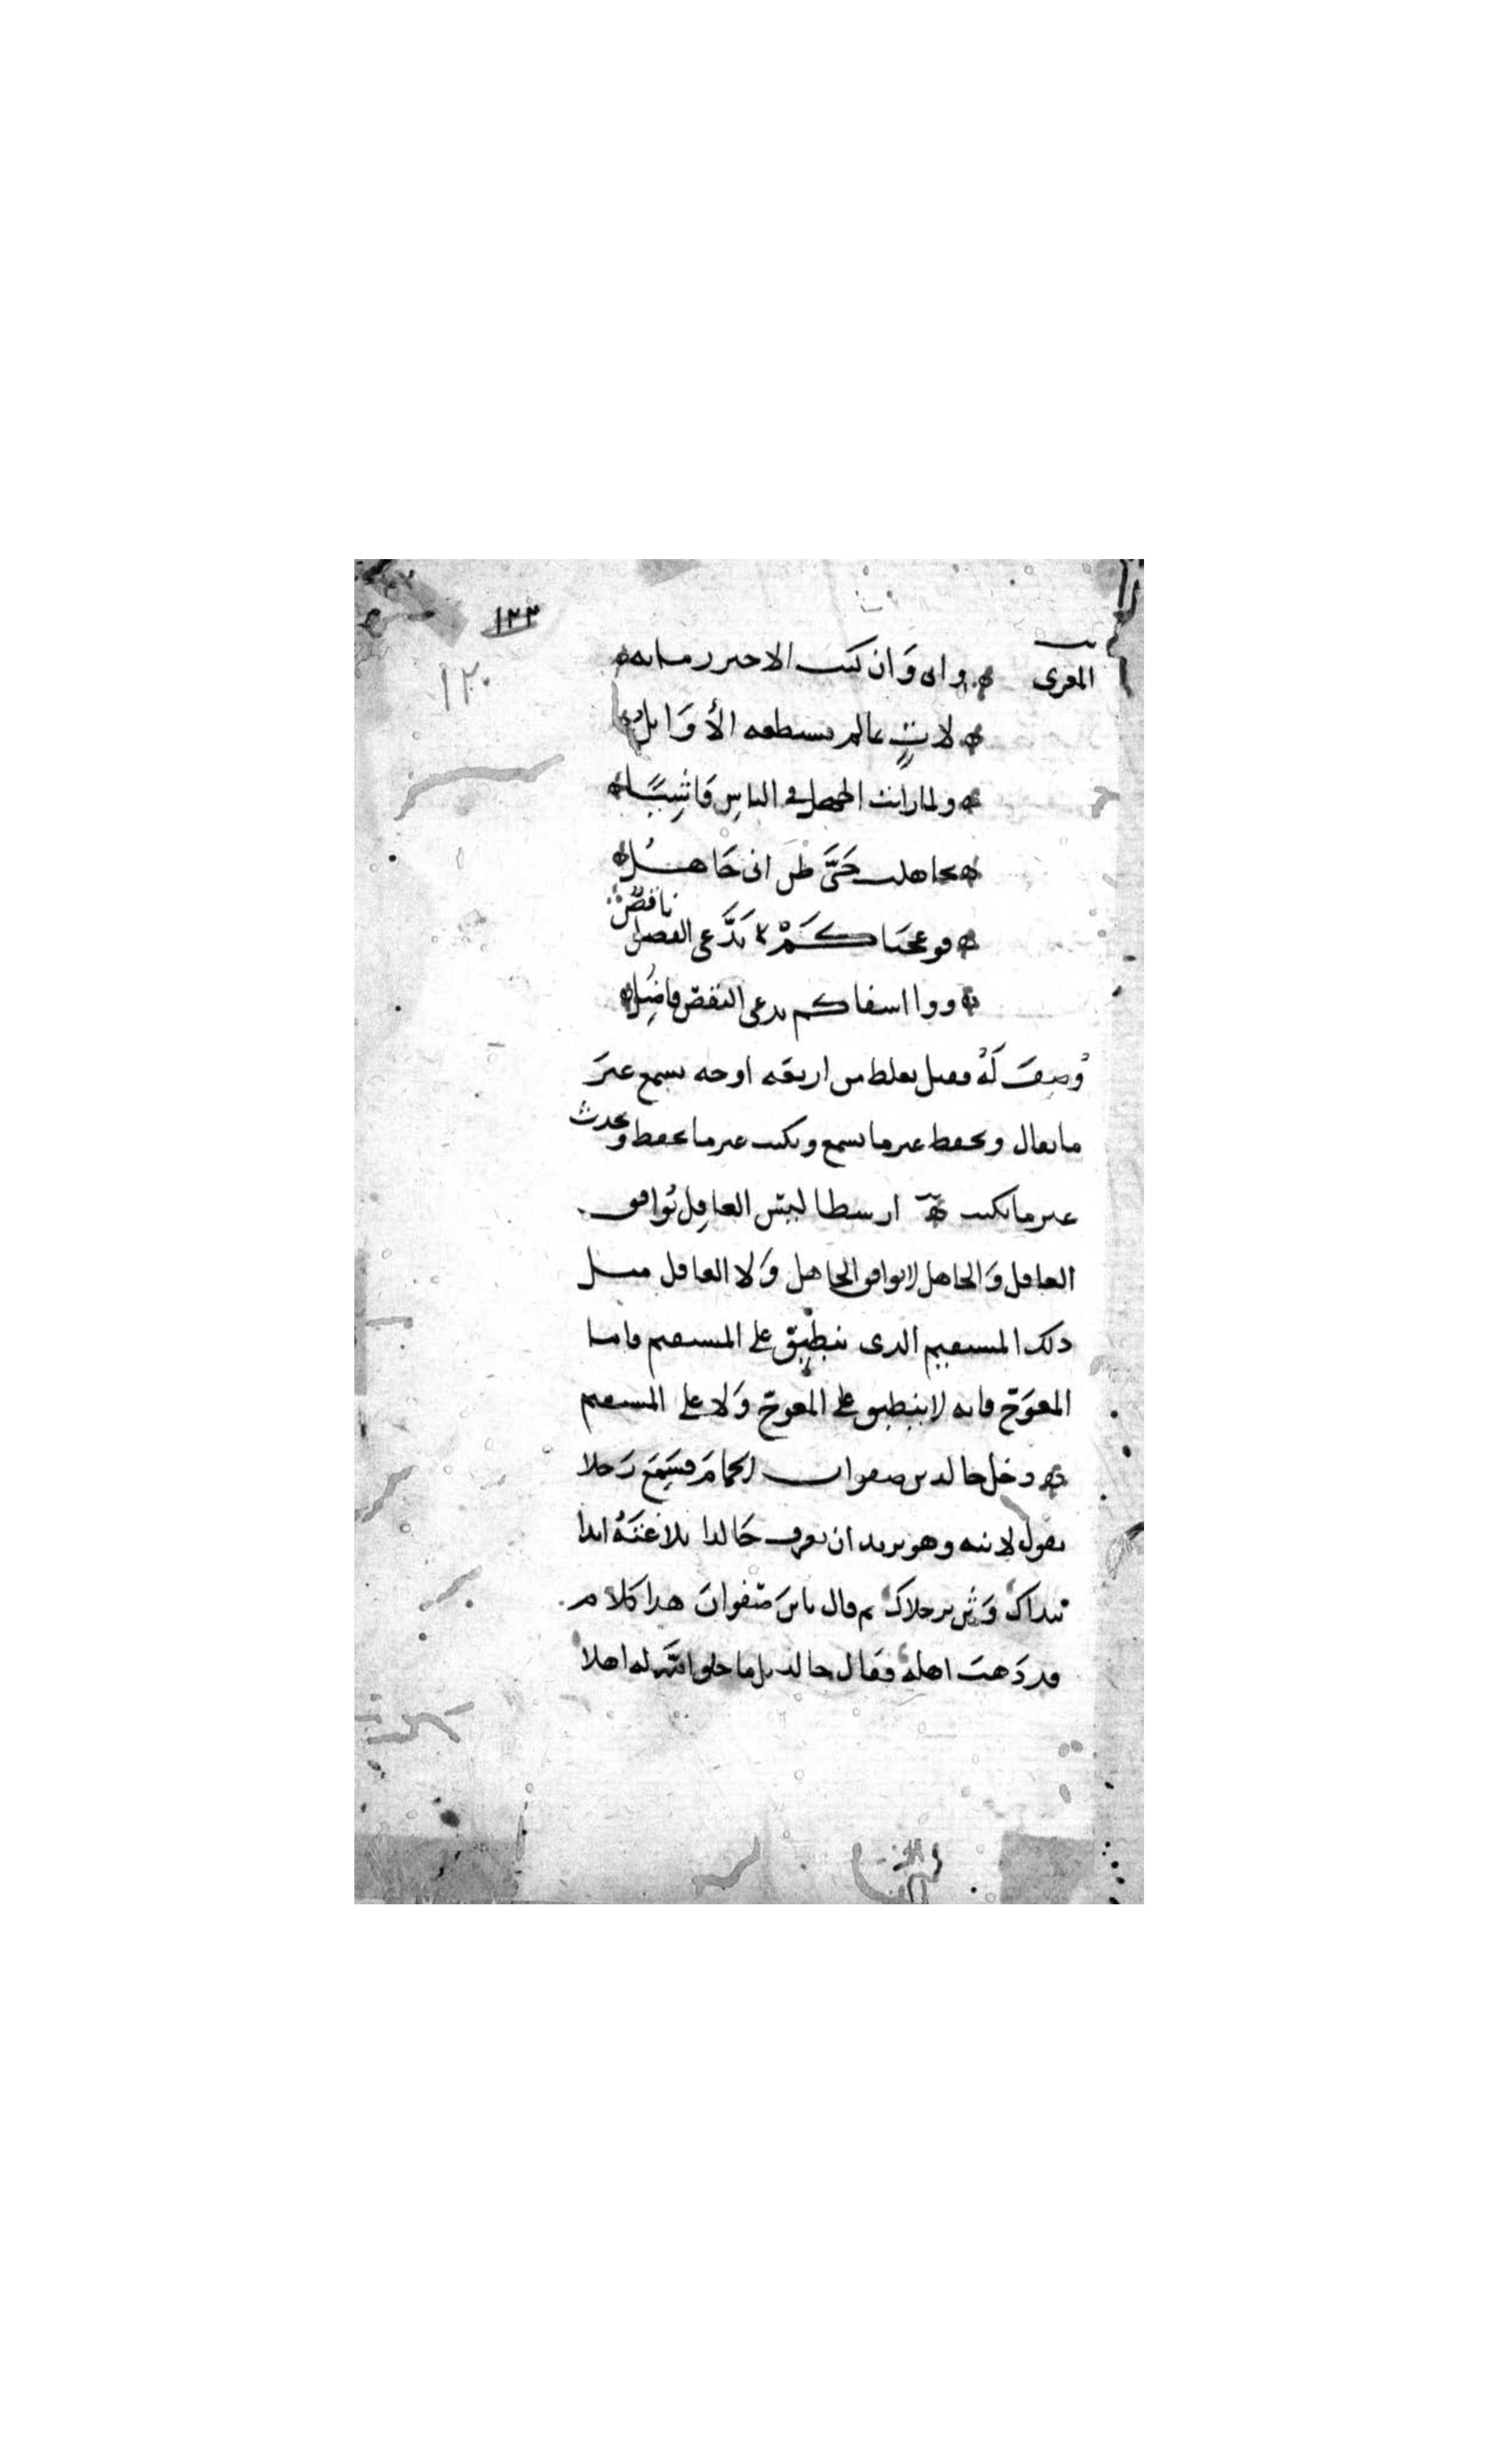 ١٢٣
١٢٠
المعري وإنى وَان كنت الاخير زمانه
لاتٍ بما لم تستطعه الأوَائل
ولما رايت الجهل في الناسِ فَاشِيًا
تجاهلت حَتَّى ظن انى جَاهلُ
فوعجبا كَمْ يَدَّعى الفضل ناقصٌ
ووا اسفا كم يدعى النقص فاضِلُ
وُصِفَ لَهُ فصل يغلط من اربعه اوجه يسمع غيرَ
ما يقال ويحفظ غير ما يسمع ويكتب غير ما يحفظ ويحدث
غير ما يكتب ارسطاليس العاقِل يُوافق
العاقل وَالجاهل لا يوافق الجاهل وَلا العاقل مثل
ذلك المستقيم الذى ينطبق على المستقيم فاما
المعوَج فانه لا ينطبق على المعوج وَلا على المستقيم
دخل خالد بن صفوان الحمامَ فسَمِعَ رَجلا
يقول لابنه وهو يريد ان يعرف خَالدا بلاغتَهُ ابدا
بيداك وَثن برجلاك ثم قال يابنَ صفوانَ هذا كلام
قد ذَهبَ اهله فقال خالد بل ما خلق اللَّه له اهلا